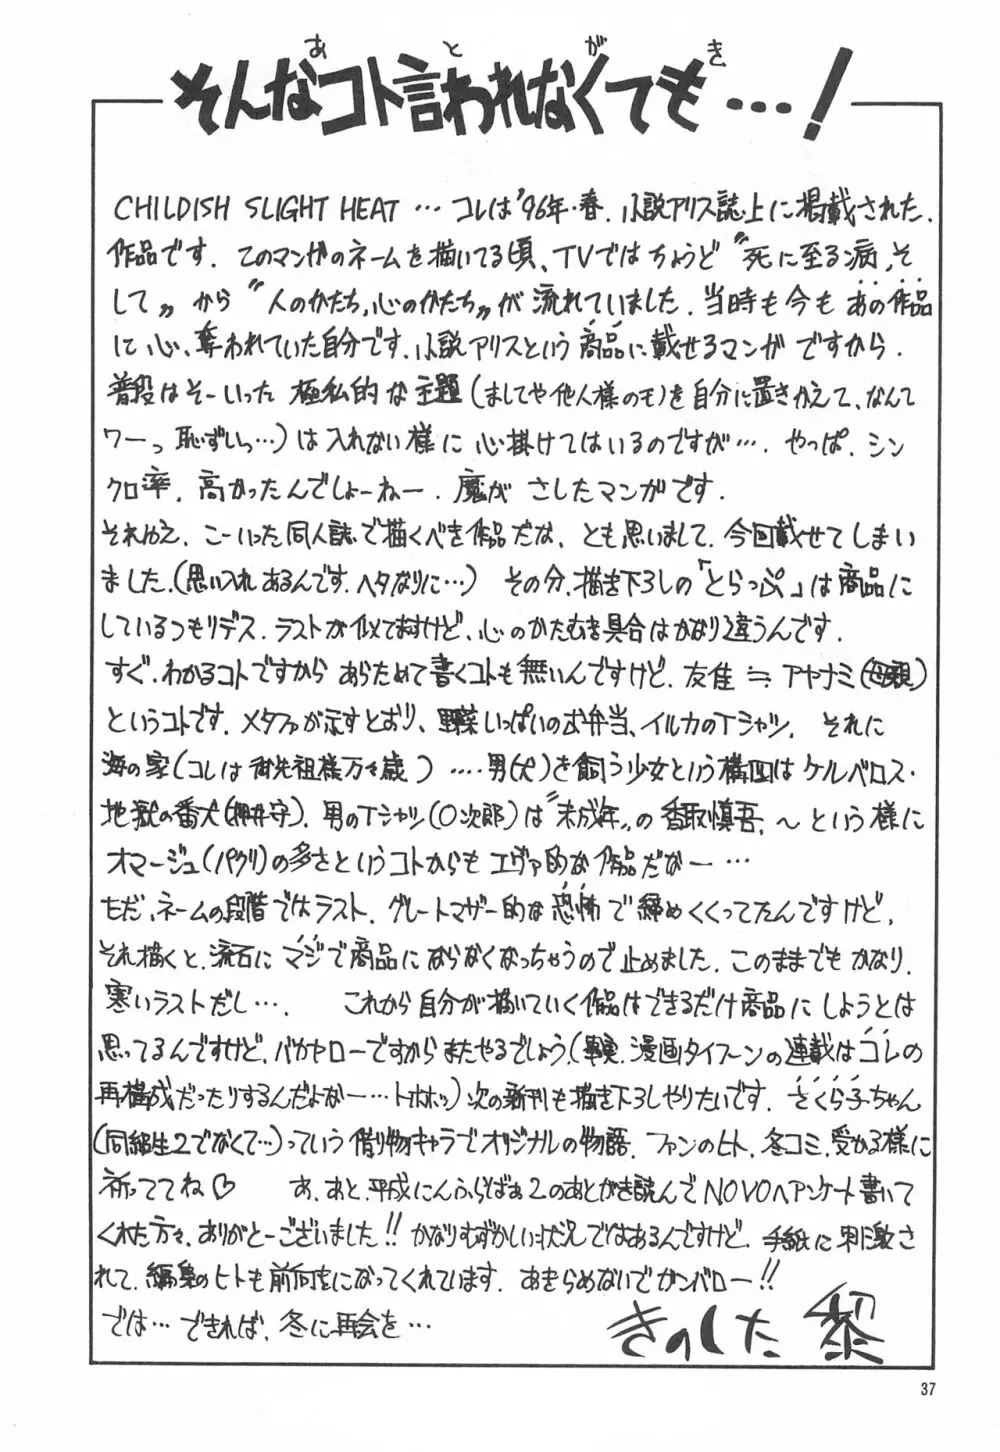 あとがき
そんなコト言われなくても…！
CHILDISH SLIGHT HEAT … コレは'96年・春．小説アリス誌上に掲載された．
作品です．このマンガのネームを描いてる頃、TVではちょうど〝死に至る病，そ
して〟から〝人のかたち，心のかたち〟が流れていました．当時も今もあの作品
に心、奪われていた自分です．小説アリスという商品に載せるマンガですから．
普段はそーいった極私的な主題（ましてや他人様のモノを自分に置きかえて、なんて
ワーっ恥ずいっ…）は入れない様に心掛けてはいるのですが…．やっぱ．シン
クロ率．高かったんでしょーねー．魔がさしたマンガです．
それゆえ．こーいった同人誌で描くべき作品だな．とも思いまして．今回載せてしまい
ました．（思い入れあるんです．ヘタなりに…）その分．描き下ろしの「とらっぷ」は商品に
しているつもりデス．ラストが似てますけど、心のかたむき具合はかなり違うんです．
すぐ．わかるコトですからあらためて書くコトも無いんですけど．友佳≒アヤナミ（母親）
というコトです．メタファが示すとおり、野菜いっぱいのお弁当、イルカのTシャツ．それに
海の家（コレは御先祖様万々歳）‥‥男（犬）を飼う少女という構図はケルベロス・
地獄の番犬（押井守）．男のTシャツ（O次郎）は〝未成年〟の香取慎吾．～という様に
オマージュ（パクリ）の多さというコトからもエヴァ的な作品だなー…
ただ、ネームの段階ではラスト．グレートマザー的な恐怖で締めくくってたんですけど．
それ描くと．流石にマジで商品にならなくなっちゃうので止めました．このままでもかなり．
寒いラストだし…．これから自分が描いていく作品はできるだけ商品にしようとは
思ってるんですけど．バカヤローですからまたやるでしょう（事実．漫画タイフーンの連載はコレの
再構成だったりするんだよなー…トホホッ）次の新刊も描き下ろしやりたいです．さくら子ちゃん
（同級生2でなくて…）っていう借り物キャラでオリジナルの物語．ファンのヒト．冬コミ．受かる様に
祈っててね♡　あ．あと．平成にんふらばぁ2のあとがき読んでNOVOへアンケート書いて
くれた方々．ありがとーございました!!かなりむずかしい状況ではあるんですけど．手紙に刺激さ
れて．編集のヒトも前向きになってくれています．あきらめないでガンバロー!!
では…できれば．冬に再会を…
きのした黎
37